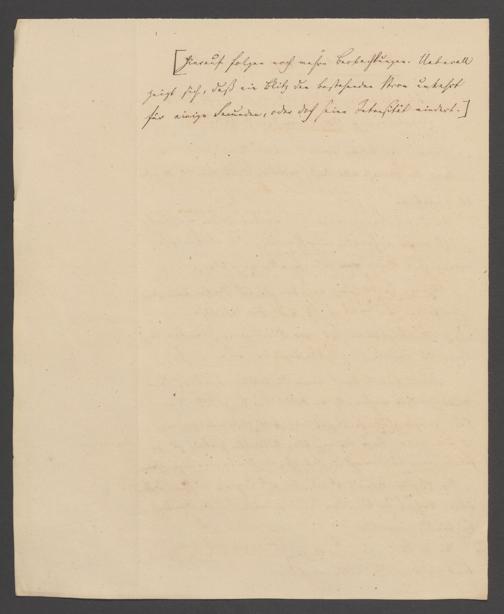 [Hierauf folgen noch mehre Beobachtungen. Ueberall
zeigt sich, daß ein Blitz den bestehenden Strom umkehrt
für einige Secunden, oder doch seine Intensität ändert.]